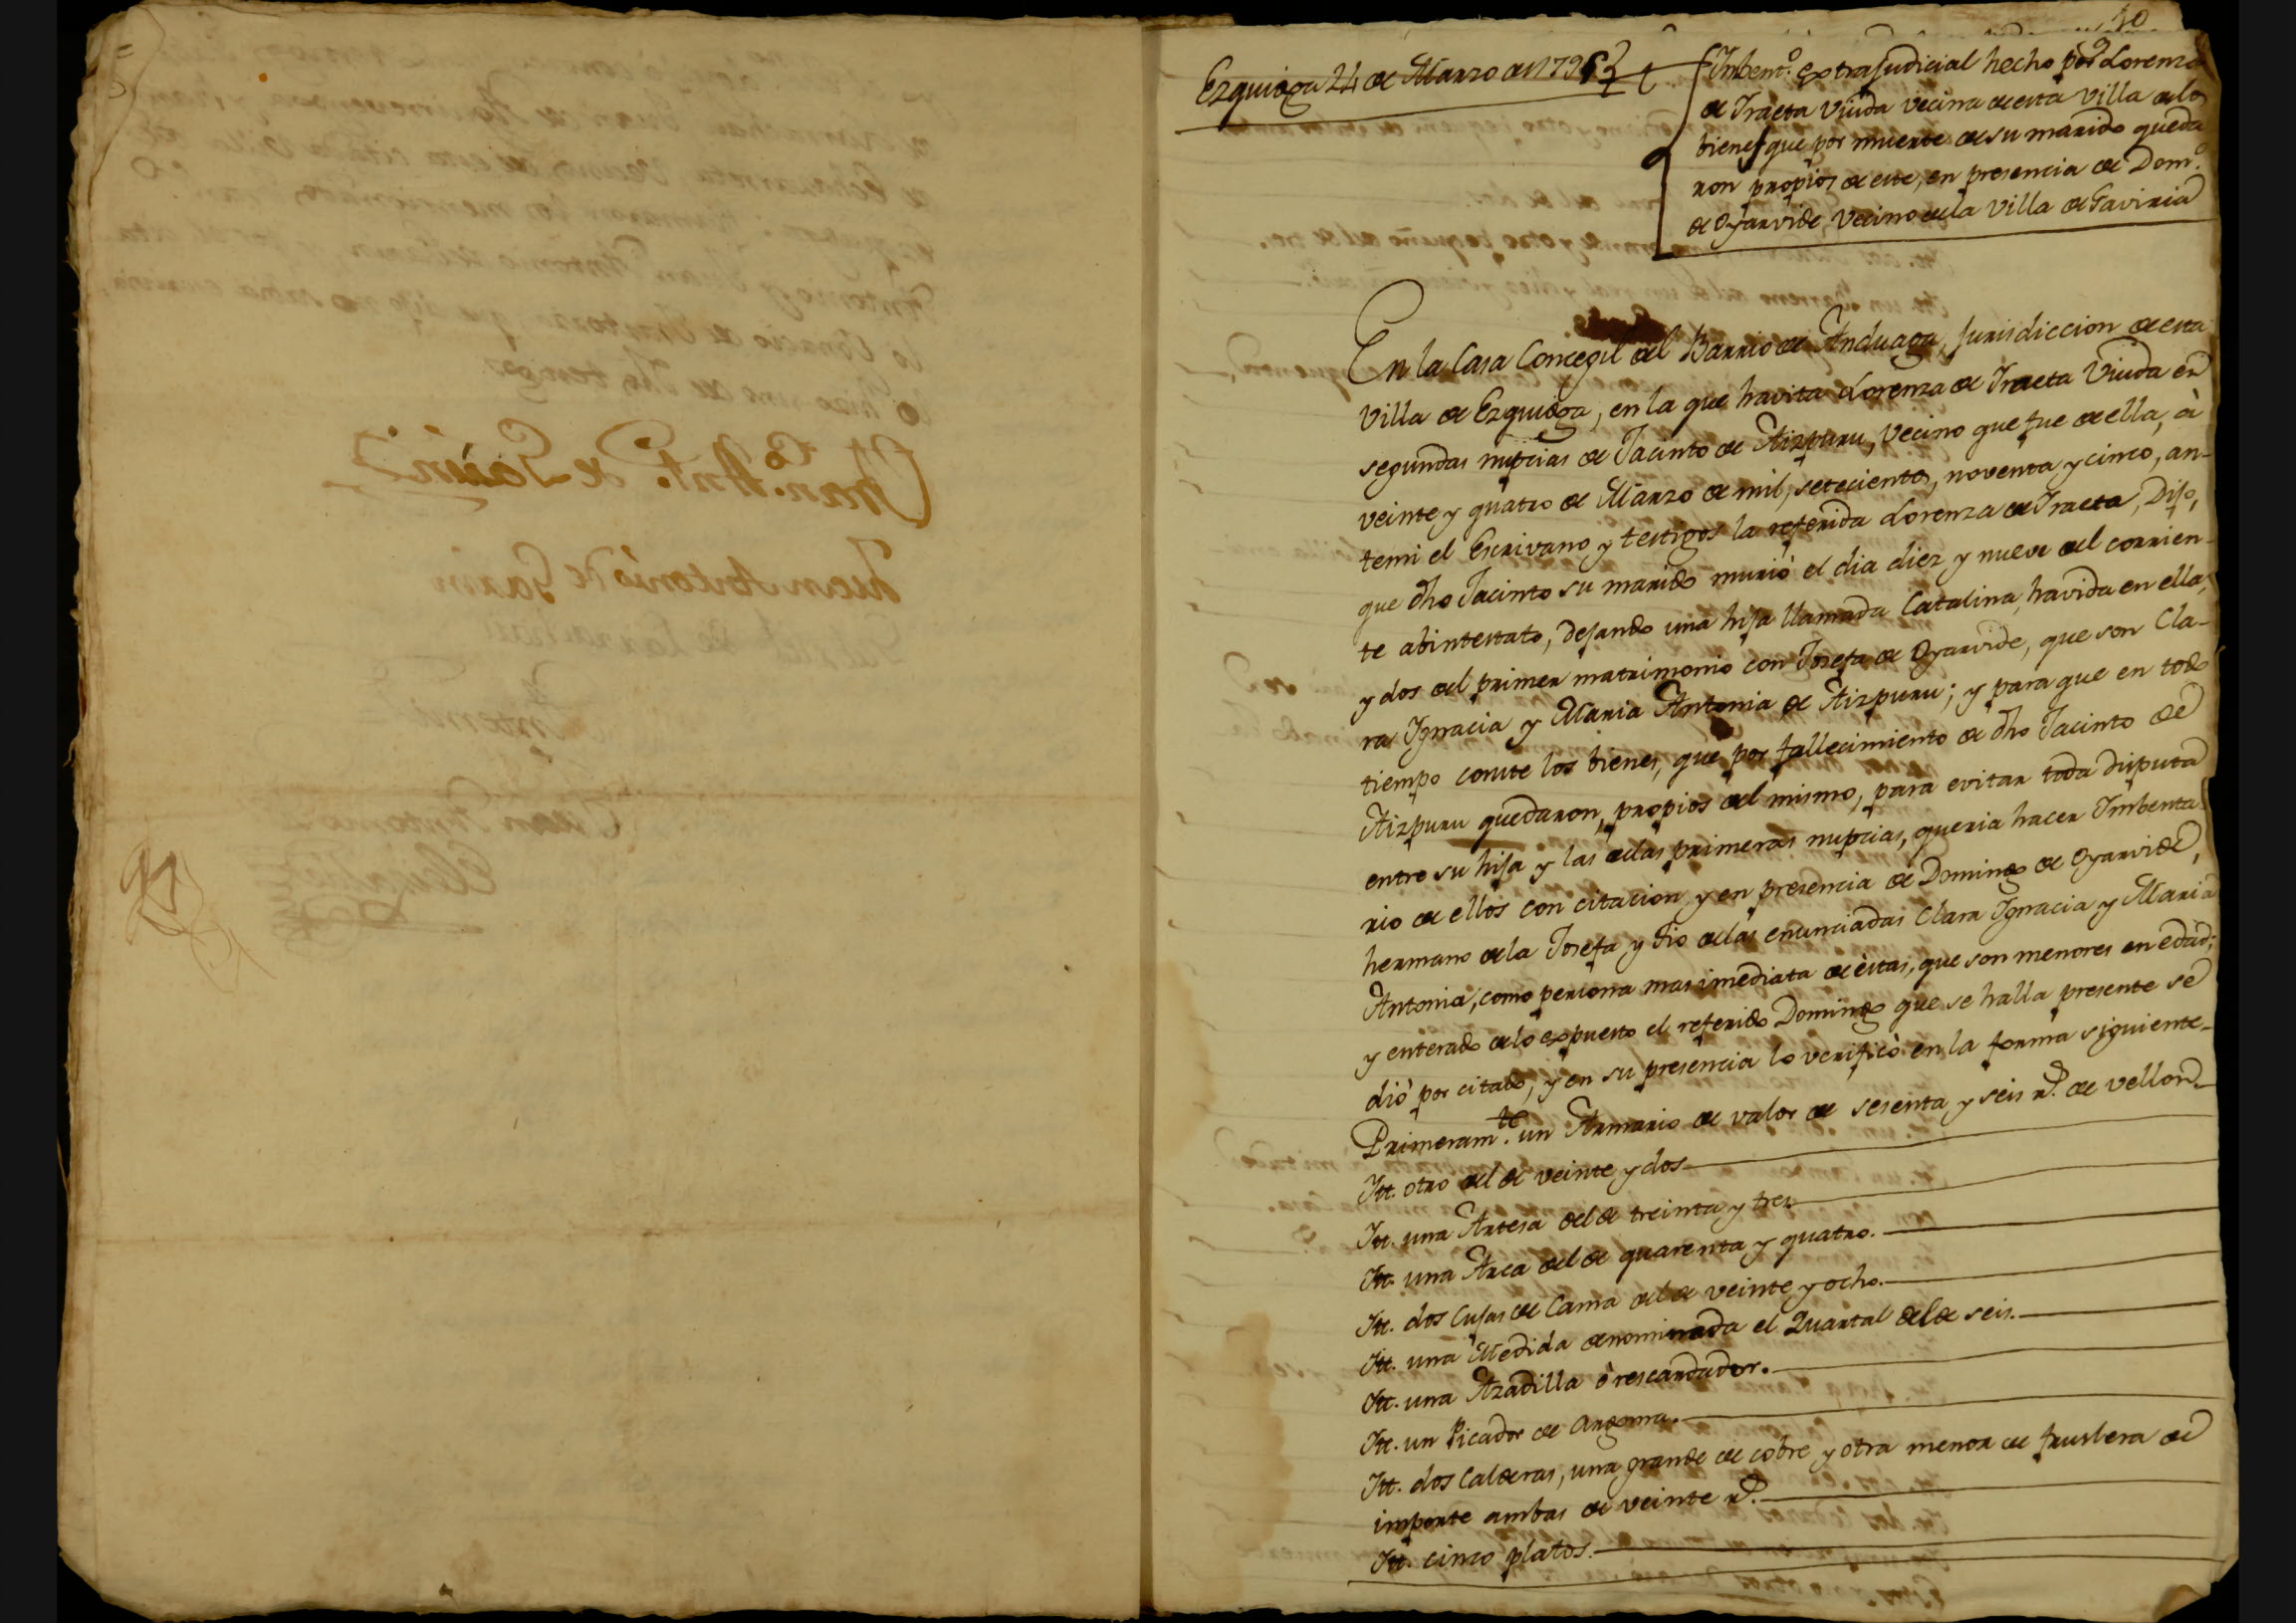 40
Ezquioga 24 de Marzo de 1795
Imbent.º extrajudicial hecho por Lorenza
de Iraeta Viuda vecina de esta villa de los
bienes que por muerte de su marido queda
ron propios de este, en presencia de Dom.º
de Oyarvide Vecino de la Villa de Gaviria
En la Casa Concegil del Barrio de Anduaga, Jurisdiccion de esta
Villa de Ezquioga, en la que havita Lorenza de Iraeta Viuda en
segundas nupcias de Jacinto de Aizpuru, Vecino que fue de ella, à
veinte y quatro de Marzo de mil, setecientos, noventa y cinco, an-
temi el Escrivano y testigos la referida Lorenza de Iraeta, Dijo,
que dho Jacinto su marido murió el dia diez y nueve del corrien-
te abintestato, dejando una hija llamada Catalina, havida en ella,
y dos del primer matrimonio con Josefa de Oyarvide, que son Cla-
ra Ignacia y Maria Antonia de Aizpuru; y para que en todo
tiempo conste los bienes, que por fallecimiento de dho Jacinto de
Aizpuru quedaron, propios del mismo, para evitar toda disputa
entre su hija y las delas primeras nupcias, queria hacer Imbenta-
rio de ellos con citacion y en presencia de Domingo de Oyarvide,
hermano dela Josefa y tio delas enunciadas Clara Ignacia y Maria
Antonia, como persona mas imediata de èstas, que son menores en edad;
y enterado delo expuesto el referido Domingo que se halla presente se
dió por citado, y en su presencia lo verificò en la forma siguiente-
Primeram.te un Armario de valor de sesenta y seis r.s de vellon
Itt. otro del de veinte y dos
Itt. una Artesa del de treinta y tres
Itt. una Arca del de quarenta y quatro.
Itt. dos Cujas de Cama del de veinte y ocho.
Itt. una Medida denominada el Quartal del de seis.
Itt. una Azadilla ò rescardador.
Itt. un Picador de Argoma.
Itt. dos Calderas, una grande de cobre y otra menor de fruslera de
importe ambas de veinte r.s
Itt. cinco platos.